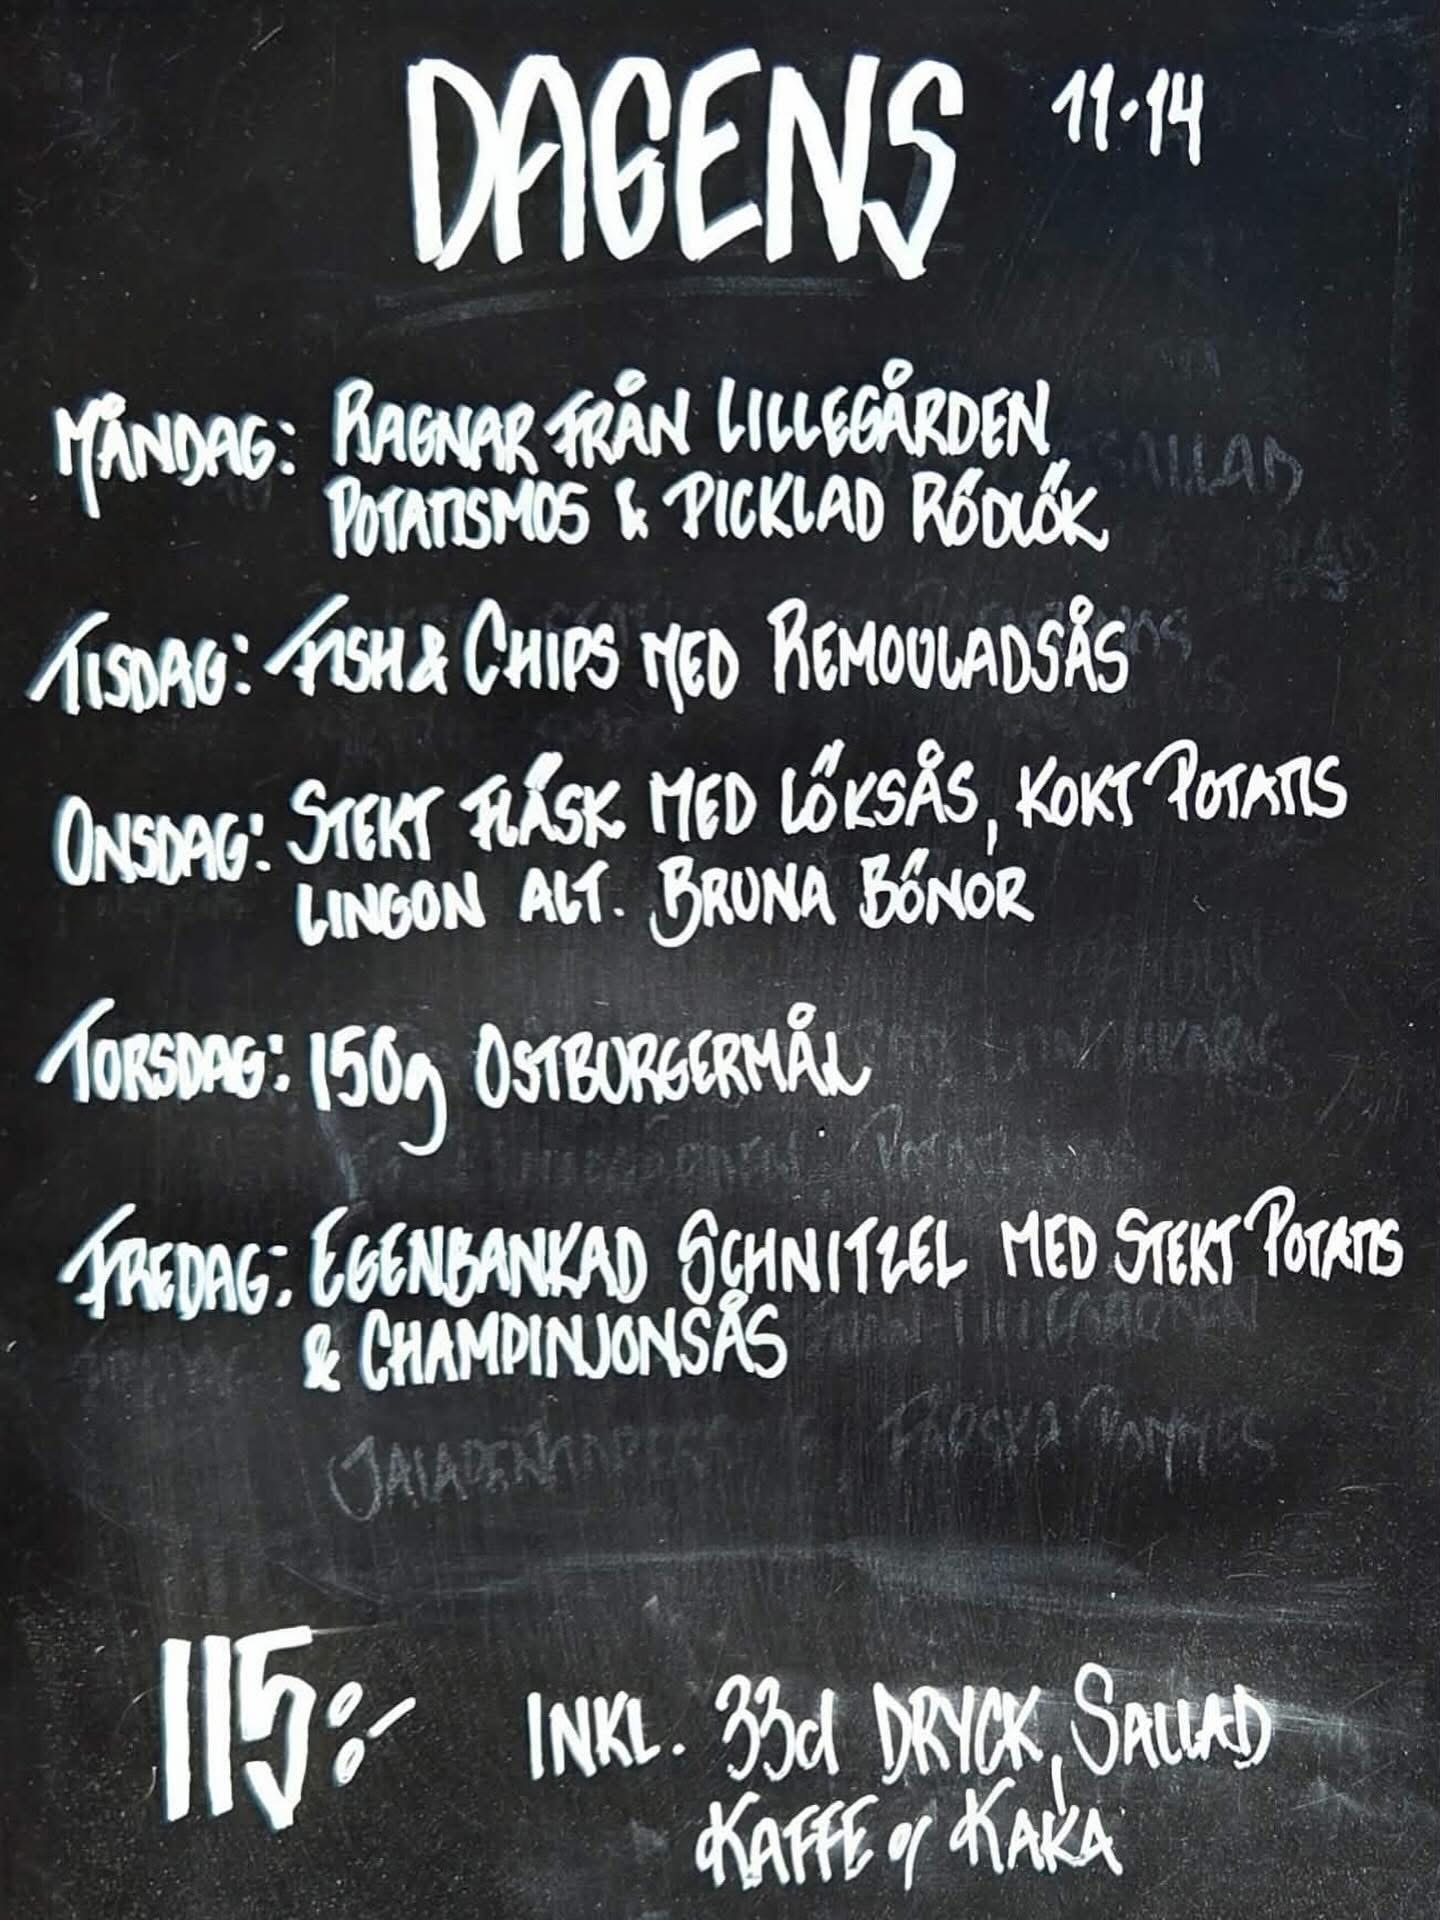 DAGENS 11-14
MÅNDAG: RAGNAR FRÅN LILLEGÅRDEN
POTATISMOS & PICKLAD RÖDLÖK
TISDAG: FISH & CHIPS MED REMOULADSÅS
ONSDAG: STEKT FLÄSK MED LÖKSÅS, KOKT POTATIS
LINGON ALT. BRUNA BÖNOR
TORSDAG: 150g OSTBURGERMÅL
FREDAG: EGENBANKAD SCHNITZEL MED STEKT POTATIS
& CHAMPINJONSÅS
115:- INKL. 33cl DRYCK, SALLAD
KAFFE & KAKA